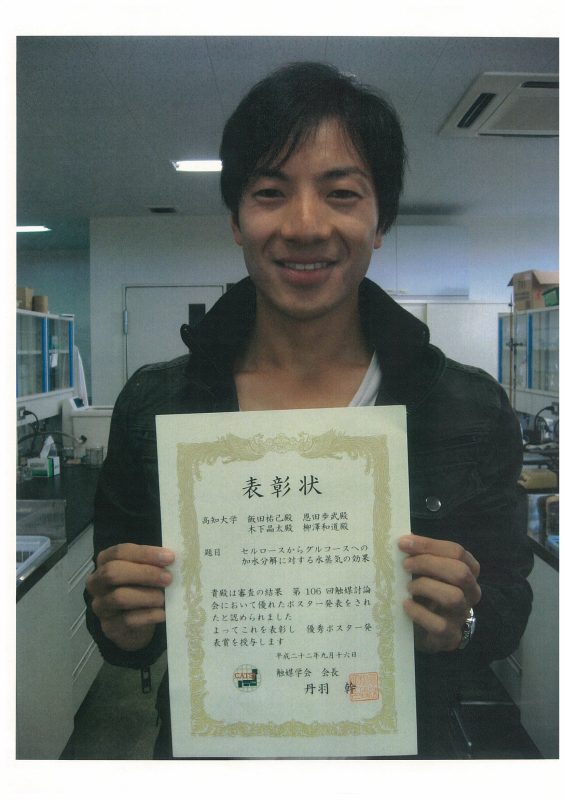 表彰状
高知大学 飯田祐己殿 恩田歩武殿
木下晶太殿 柳澤和道殿
題目 セルロースからグルコースへの
加水分解に対する水蒸気の効果
貴殿は審査の結果 第106回触媒討論
会において優れたポスター発表をされ
たと認められました
よってこれを表彰し 優秀ポスター発
表賞を授与します
平成二十二年九月十六日
CATSJ
触媒学会 会長
丹羽 幹